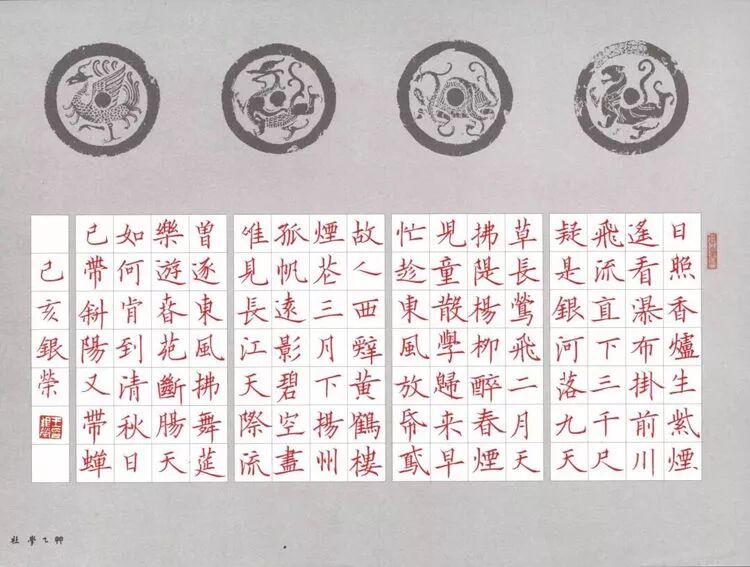 日照香爐生紫煙
遙看瀑布掛前川
飛流直下三千尺
疑是銀河落九天
草長鶯飛二月天
拂隄楊柳醉春煙
兒童散學歸来早
忙趁東風放帋鳶
故人西辤黃鶴樓
煙花三月下揚州
孤帆遠影碧空盡
唯見長江天際流
曾逐東風拂舞筵
樂遊春苑斷腸天
如何肯到清秋日
已帶斜陽又帶蟬
己亥銀榮
乙學社